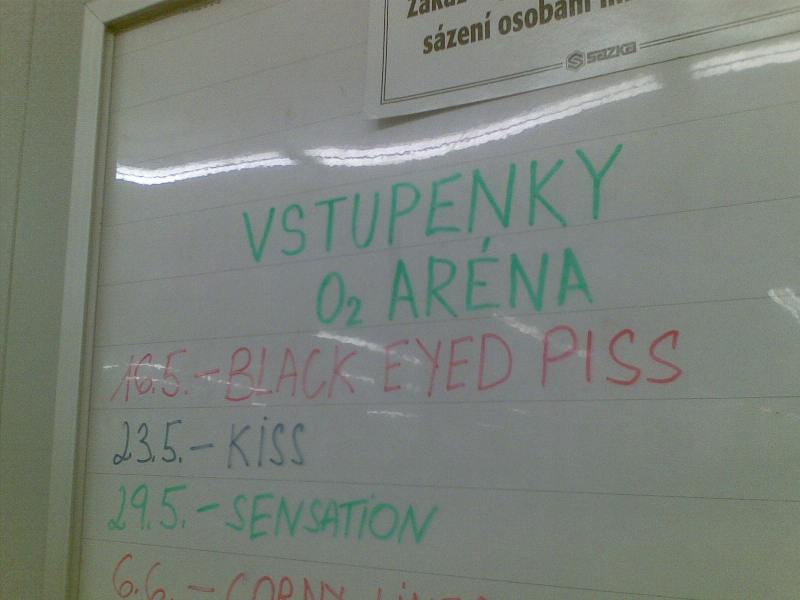 sázení osobám
SAZKA
VSTUPENKY
O2 ARÉNA
16.5. - BLACK EYED PISS
23.5. - KISS
29.5. - SENSATION
6.6. -